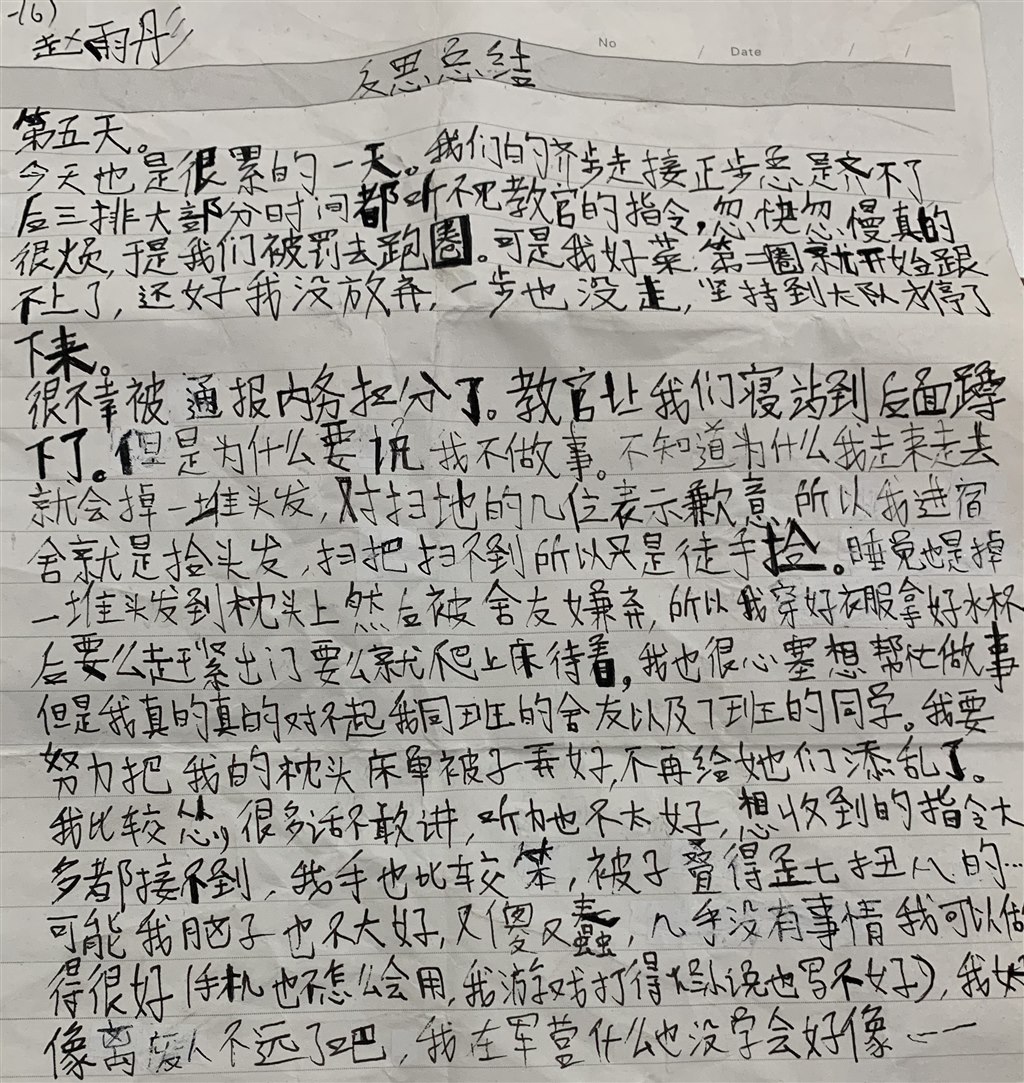 -(6)
赵雨彤
No
Date
反思总结
第五天。
今天也是很累的一天。我们的齐步走接正步总是齐不了
后三排大部分时间都听不见教官的指令,忽快忽慢真的
很烦,于是我们被罚去跑圈。可是我好菜.第二圈就开始跟
不上了,还好我没放弃,一步也没走,坚持到大队才停了
下来。
很不幸被通报内务扣分了。教官让我们寝站到后面蹲
下了。但是为什么要说我不做事。不知道为什么我走来走去
就会掉一堆头发,对扫地的几位表示歉意.所以我进宿
舍就是捡头发,扫把扫不到所以只是徒手捡。睡觉也是掉
一堆头发到枕头上然后被舍友嫌弃,所以我穿好衣服拿好水杯
后要么赶紧出门要么就爬上床待着,我也很心塞想帮忙做事
但是我真的真的对不起我同班的舍友以及7班的同学。我要
努力把我的枕头床单被子弄好,不再给她们添乱了。
我比较怂,很多话不敢讲,听力也不太好,想收到的指令大
多都接不到,我手也比较笨,被子叠得歪七扭八的…
可能我脑子也不大好,又傻又蠢,几乎没有事情我可以做
得很好(手机也不怎么会用,我游戏打得烂小说也写不好),我好
像离废人不远了吧,我在军营什么也没学会好像……